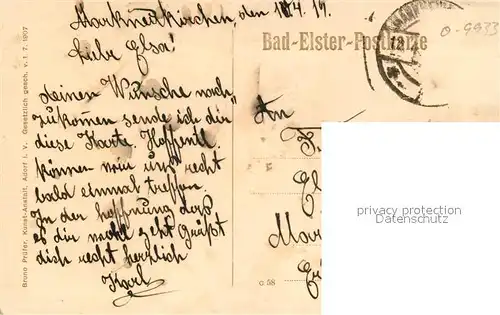 Markneukirchen, den 18.4.19.
Liebe Elsa!
Bad-Elster-Postkarte
0-9933
deinen Wunsche nach
zukomen sende ich dir
diese Karte. Hoffentl.
können wir uns recht
bald einmal treffen.
In der hoffnung dass
es dir noch geht grüßt
dich recht herzlich
Karl
An
F
El
Mar
privacy protection
Datenschutz
C 58
Bruno Prüfer, Kunst-Anstalt, Adorf i. V. Gesetzlich gesch. v. 1. 7. 1907